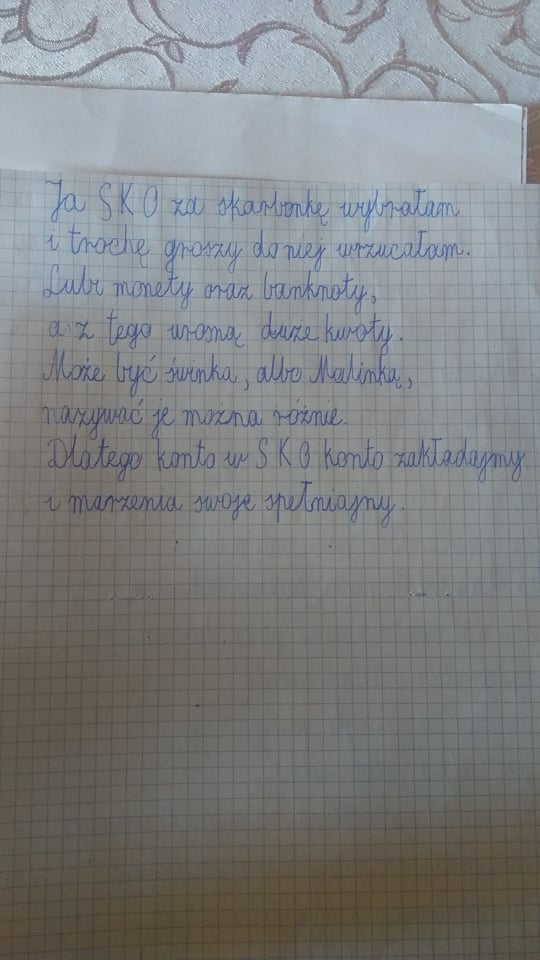 Ja SKO za skarbonkę wybrałam
i trochę groszy do niej wrzucałam.
Lubi monety oraz banknoty,
a z tego urosną duże kwoty.
Może być świnka, albo Malinka,
nazywać je można różnie.
Dlatego konto w SKO konto zakładajmy
i marzenia swoje spełniajmy.